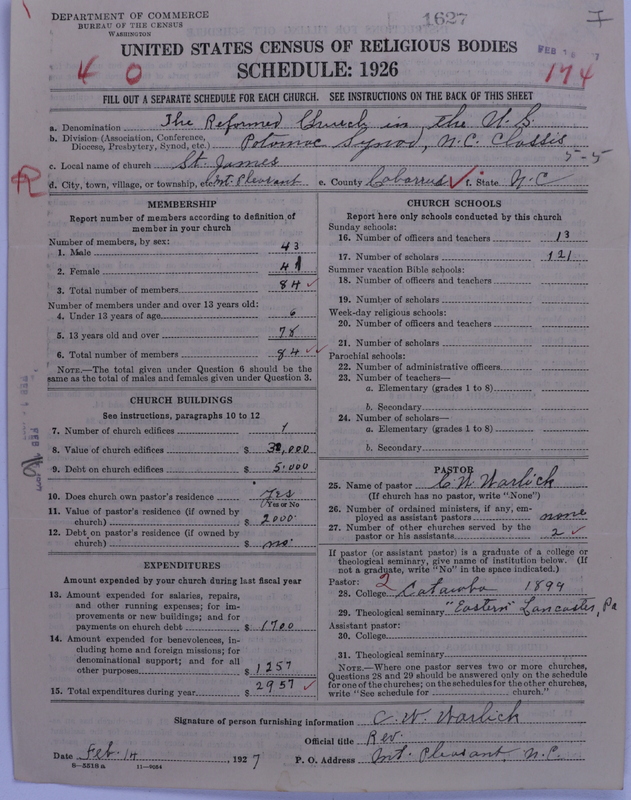 DEPARTMENT OF COMMERCE
BUREAU OF THE CENSUS
WASHINGTON
1627
I
UNITED STATES CENSUS OF RELIGIOUS BODIES
SCHEDULE: 1926
FEB 1
4 0
174
FILL OUT A SEPARATE SCHEDULE FOR EACH CHURCH. SEE INSTRUCTIONS ON THE BACK OF THIS SHEET
a. Denomination The Reformed Church in the U. S.
b. Division (Association, Conference, Diocese, Presbytery, Synod, etc.) Potomac Synod, N.C. Classis
5-5
c. Local name of church St. James
R
d. City, town, village, or township, etc. Mt. Pleasant e. County Cabarrus f. State N.C
MEMBERSHIP
Report number of members according to definition of member in your church
Number of members, by sex:
1. Male 43
2. Female 41
3. Total number of members 84
Number of members under and over 13 years old:
4. Under 13 years of age 6
5. 13 years old and over 78
6. Total number of members 84
NOTE.—The total given under Question 6 should be the same as the total of males and females given under Question 3.
CHURCH BUILDINGS
See instructions, paragraphs 10 to 12
7. Number of church edifices 1
8. Value of church edifices $ 30,000
9. Debt on church edifices $ 5.000
10. Does church own pastor's residence Yes
(Yes or No
11. Value of pastor's residence (if owned by church) $ 2000.
12. Debt on pastor's residence (if owned by church) $ no.
EXPENDITURES
Amount expended by your church during last fiscal year
13. Amount expended for salaries, repairs, and other running expenses; for improvements or new buildings; and for payments on church debt $ 1700
14. Amount expended for benevolences, including home and foreign missions; for denominational support; and for all other purposes $ 1257
15. Total expenditures during year $ 2957
CHURCH SCHOOLS
Report here only schools conducted by this church
Sunday schools:
16. Number of officers and teachers 13
17. Number of scholars 121
Summer vacation Bible schools:
18. Number of officers and teachers
19. Number of scholars
Week-day religious schools:
20. Number of officers and teachers
21. Number of scholars
Parochial schools:
22. Number of administrative officers
23. Number of teachers—
a. Elementary (grades 1 to 8)
b. Secondary
24. Number of scholars—
a. Elementary (grades 1 to 8)
b. Secondary
PASTOR
25. Name of pastor C. W. Warlick
(If church has no pastor, write "None")
26. Number of ordained ministers, if any, employed as assistant pastors none
27. Number of other churches served by the pastor or his assistants 2
If pastor (or assistant pastor) is a graduate of a college or theological seminary, give name of institution below. (If not a graduate, write "No" in the space indicated.)
Pastor:
28. College 2 Catawba 1899
29. Theological seminary "Eastern" Lancaster, Pa
Assistant pastor:
30. College
31. Theological seminary
NOTE.—Where one pastor serves two or more churches, Questions 28 and 29 should be answered only on the schedule for one of the churches; on the schedules for the other churches, write "See schedule for ______ church."
Signature of person furnishing information C. W. Warlick
Official title Rev.
Date Feb. 14, 1927 P. O. Address Mt. Pleasant, N.C.
8—5518 a 11—9054